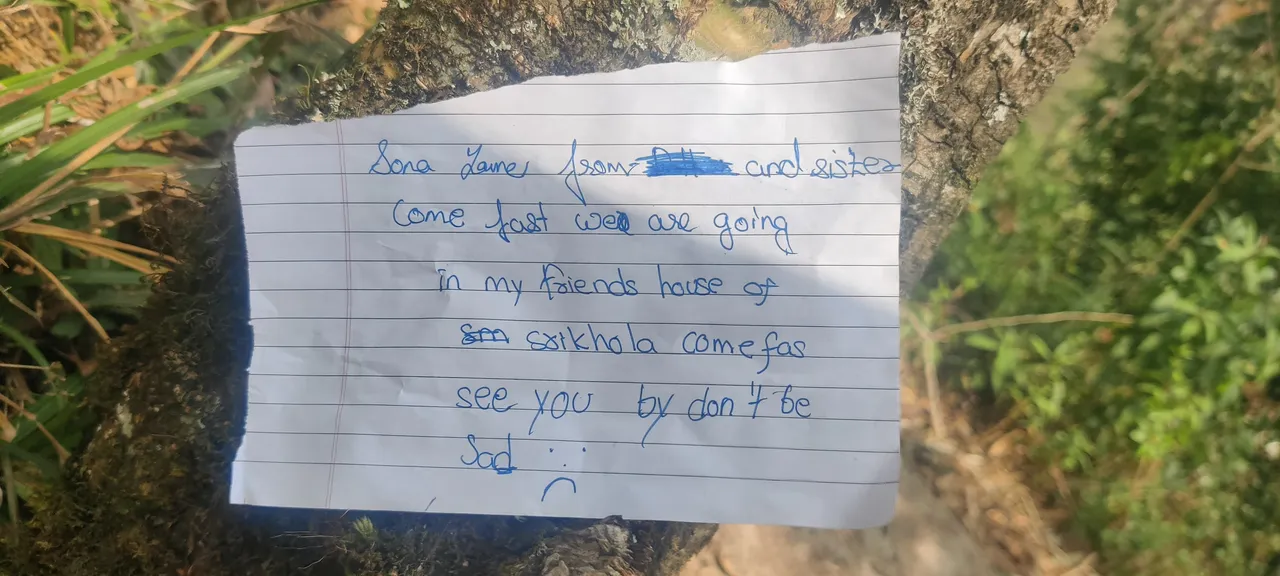 Sona Lame from and sister
Come fast we are going
in my friends house of
srikhola come fas
see you by don't be
Sad